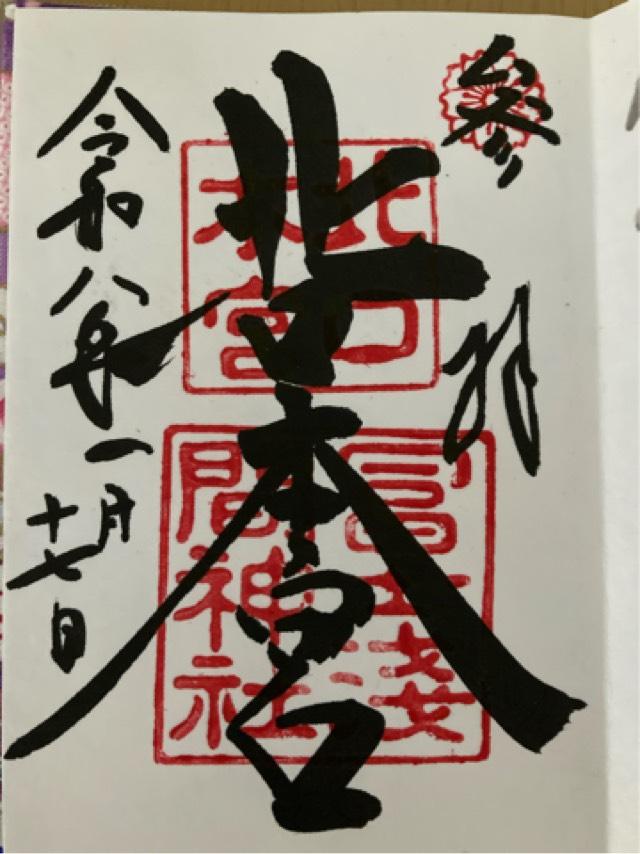 参拝
北口本宮
北口
本宮
冨士淺
間神社
令和八年一月
十七日